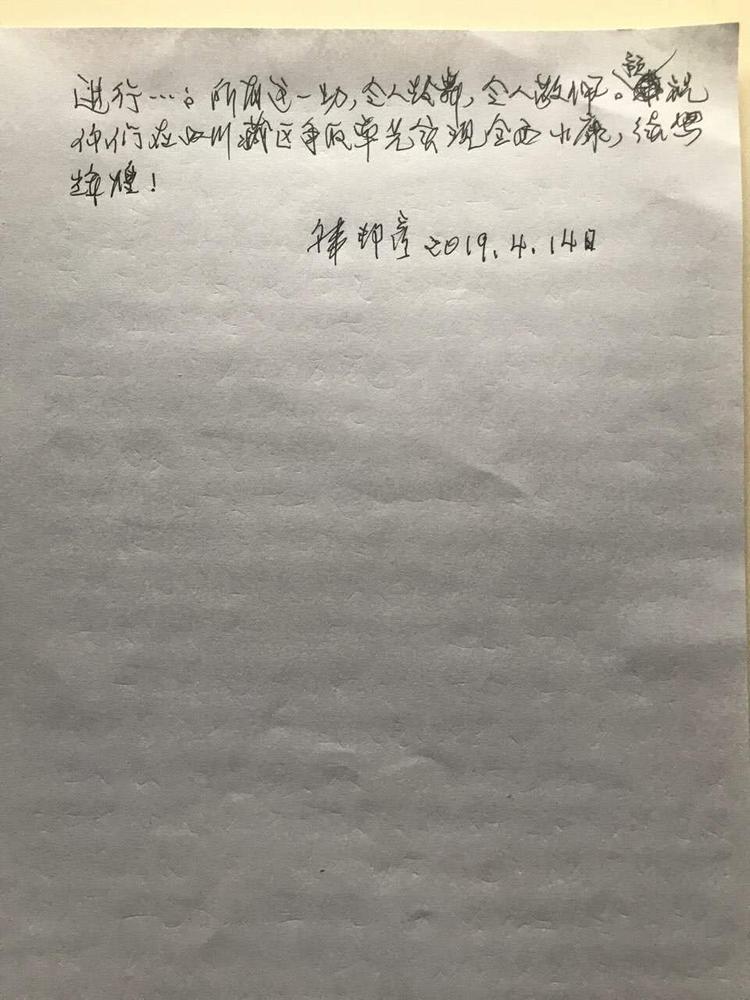 进行…。所有这一切,令人鼓舞,令人敬佩。预祝
你们在四川藏区争取率先实现全面小康,续写
辉煌!
韩邦彦 2019.4.14日